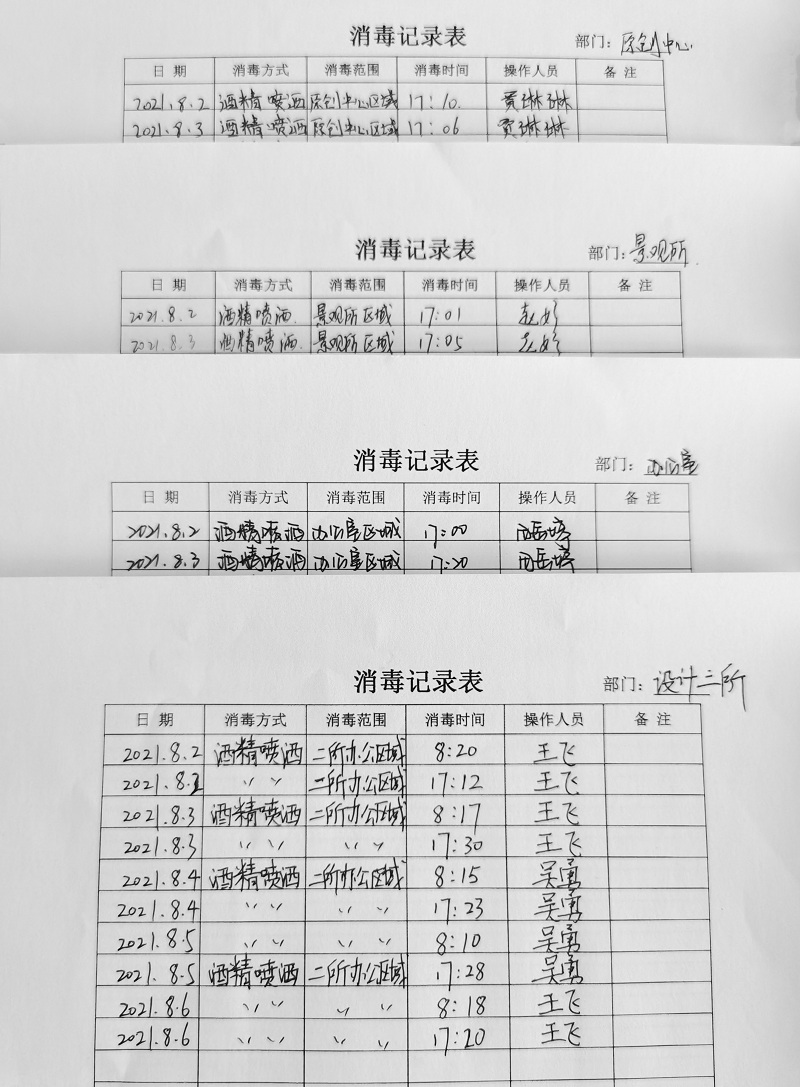 消毒记录表
部门：原创中心
日 期 消毒方式 消毒范围 消毒时间 操作人员 备 注
2021.8.2 酒精喷洒 原创中心区域 17:10 贾琳琳
2021.8.3 酒精喷洒 原创中心区域 17:06 贾琳琳
消毒记录表
部门：景观所
日 期 消毒方式 消毒范围 消毒时间 操作人员 备 注
2021.8.2 酒精喷洒 景观所区域 17:01
2021.8.3 酒精喷洒 景观所区域 17:05
消毒记录表
部门：办公室
日 期 消毒方式 消毒范围 消毒时间 操作人员 备 注
2021.8.2 酒精喷洒 办公室区域 17:00
2021.8.3 酒精喷洒 办公室区域 17:20
消毒记录表
部门：设计二所
日 期 消毒方式 消毒范围 消毒时间 操作人员 备 注
2021.8.2 酒精喷洒 二所办公区域 8:20 王飞
2021.8.2 〃 二所办公区域 17:12 王飞
2021.8.3 酒精喷洒 二所办公区域 8:17 王飞
2021.8.3 〃 〃 17:30 王飞
2021.8.4 酒精喷洒 二所办公区域 8:15 吴勇
2021.8.4 〃 〃 17:23 吴勇
2021.8.5 〃 〃 8:10 吴勇
2021.8.5 酒精喷洒 二所办公区域 17:28 吴勇
2021.8.6 〃 〃 8:18 王飞
2021.8.6 〃 〃 17:20 王飞